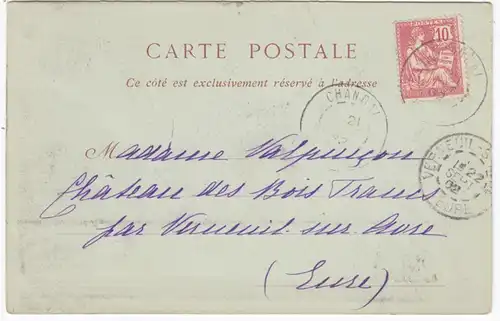 POSTES
10
CARTE POSTALE
Ce côté est exclusivement réservé à l'adresse
CHANGY
21
Madame Valpinçon
VERNEUIL-S
22
SEPT
02
EURE
Château des Bois Francs
par Verneuil sur Avre
(Eure)